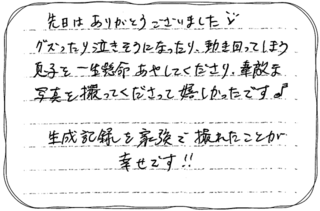 先日は ありがとうございました♡
グズったり泣きそうになったり、動き回ってしまう
息子を一生懸命あやしてくださり、素敵な
写真を撮ってくださって嬉しかったです♪
生成記録を家族で撮れたことが
幸せです!!